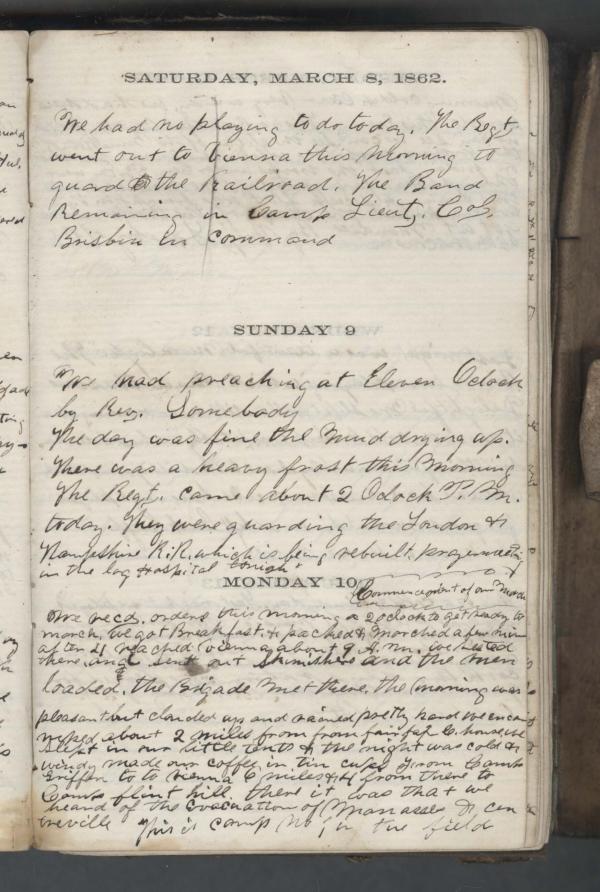 SATURDAY, MARCH 8, 1862.
We had no playing to do today. The Regt
went out to Vienna this Morning to
guard the Railroad. The Band
Remaining in Camp Lieut. Col.
Brisbin in command
SUNDAY 9
We had preaching at Eleven Oclock
by Rev. Somebody
The day was fine the mud drying up.
There was a heavy frost this Morning
The Regt. came about 2 Oclock P. M.
today. They were guarding the London &
Hampshire R.R. which is being rebuilt. prayermeeting
in the log Hospital tonight
MONDAY 10
Commencement of our March
We recd. orders this morning a 2 oclock to get ready to
march, we got Breakfast & packed & Marched a few min
after 4 reached vienna about 9 A. m. we rested
there and sent out Skirmishers and the men
loaded. the Brigade met there. the morning was
pleasant but clouded up and rained pretty hard we encam
mped about 2 miles from from fairfax C. house, we
slept in our little tents & the night was cold &
windy made our coffee in tin cups from Camp
Griffin to to vienna 6 miles & 4 from there to
Camp flint hill. there it was that we
heard of the evacuation of Manasses & cen
treville This is camp No 1 in the field